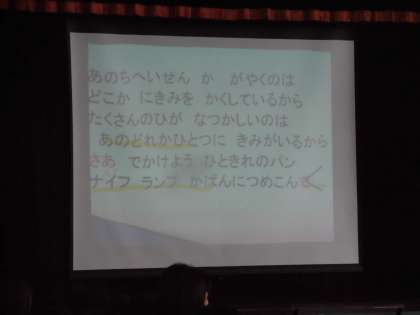 あのちへいせん か がやくのは
どこか にきみを かくしているから
たくさんのひが なつかしいのは
あのどれかひとつに きみがいるから
さあ でかけよう ひときれのパン
ナイフ ランプ かばんにつめこんで